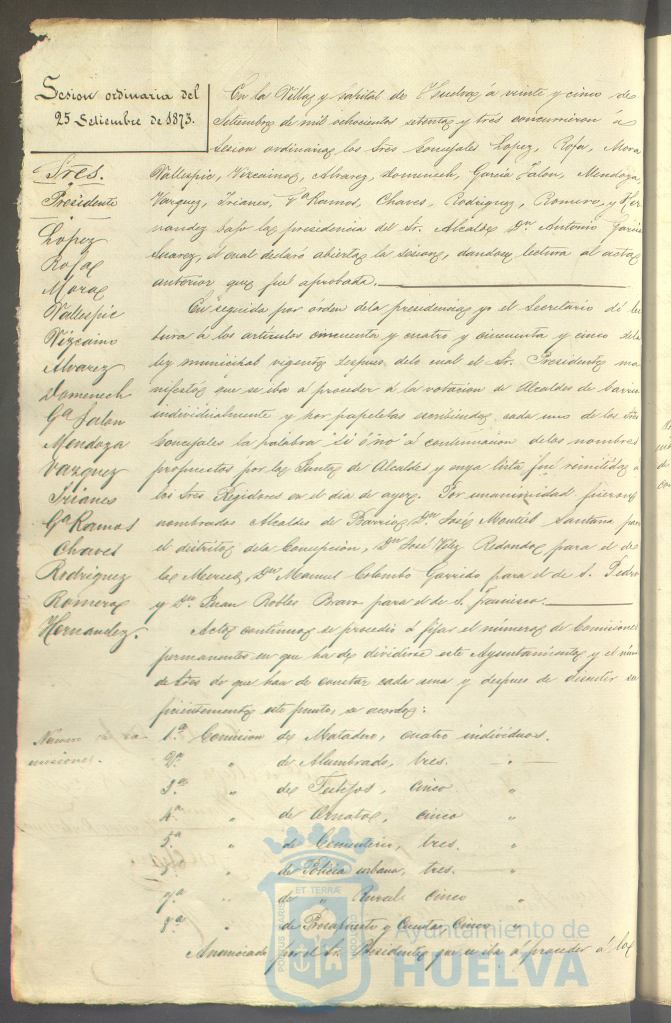 Sesion ordinaria del
25 Setiembre de 1873.
Sres.
Presidente
Lopez
Rofa
Mora
Vallespie
Vizcaino
Alvarez
Domenech
Ga Jalon
Mendoza
Vazquez
Trianes
Ga Ramos
Chaves
Rodriguez
Romero
Hernandez.
Numero de co-
misiones.
En la Villa y Capital de Huelva á veinte y cinco de
Setiembre de mil ochocientos setenta y tres concurrieron a
sesion ordinaria los Sres Concejales Lopez, Rofa, Mora
Vallespie, Vizcaino, Alvarez, Domenech, Garcia Jalon, Mendoza,
Vazquez, Trianes, Ga Ramos, Chaves, Rodriguez, Romero, y Her
nandez bajo la presidencia del Sr. Alcalde Dn. Antonio Garcia
Suarez, el cual declaró abierta la sesion, dandose lectura al acta
anterior que fué aprobada.
En seguida por órden de la presidencia yo el Secretario dí lec
tura á los artículos cincuenta y cuatro y cincuenta y cinco de la
ley municipal vigente despues de lo cual el Sr. Presidente ma
nifestó que se iba á proceder á la votacion de Alcaldes de barrio
individualmente y por papeletas escribiendo cada uno de los Sres
Concejales la palabra si ó no á continuacion de los nombres
propuestos por la Junta de Alcaldes y cuya lista fué remitida a
los Sres Rejidores en el dia de ayer. Por unanimidad fueron
nombrados Alcaldes de Barrio Dn. José Montiel Santana para
el distrito de la Concepcion, Dn José Velez Redondo para el de
la Merced, Dn Manuel Colombo Garrido para el de S. Pedro
y Dn. Juan Robles Bravo para el de S. Francisco.
Acto contínuo se procedió á fijar el número de Comisiones
permanentes en que ha de dividirse este Ayuntamiento y el núm
de Sres de que han de constar cada una y despues de discutir su
ficientemente este punto, se acordó:
1.a Comision de Matadero, cuatro individuos.
2.a " de Alumbrado, tres. "
3.a " de Festejos, cinco "
4.a " de Ornato, cinco "
5.a " de Cementerio, tres. "
" de Policia urbana, tres. "
7.a " de " Rural cinco "
8.a " de Presupuesto y Cuentas Cinco "
Anunciado por el Sr. Presidente que se iba á proceder á la
PORTUS MARIS
ET TERRÆ
CUSTODIA
Ayuntamiento de
HUELVA